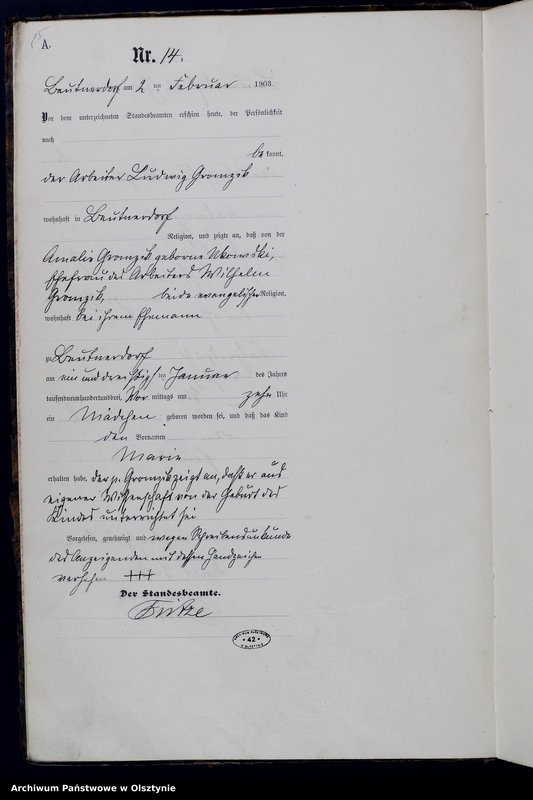 A.
Nr. 14.
Beutnerdorf am 2 ten Februar 1903.
Vor dem unterzeichneten Standesbeamten erschien heute, der Persönlichkeit
nach
bekannt,
der Arbeiter Ludwig Gromzik
wohnhaft in Beutnerdorf
Religion, und zeigte an, daß von der
Amalie Gromzik geborne
Ehefrau des Arbeiters Wilhelm
Gromzik, beide evangelischer Religion,
wohnhaft bei ihrem Ehemann
zu Beutnerdorf
am ein und dreißigsten Januar des Jahres
tausendneunhundertunddrei, Vor mittags um zehn Uhr
ein Mädchen geboren worden sei, und daß das Kind
den Vornamen
Marie
erhalten habe, der p. Gromzik zeigt an, daß er aus
eigener Wissenschaft von der Geburt des
Kindes unterrichtet sei
Vorgelesen, genehmigt und wegen Schreibensunkunde
des Anzeigenden mit dessen Handzeichen
versehen +++
Der Standesbeamte.
ARCHIWUM PAŃSTWOWE
* 42 *
W OLSZTYNIE
Archiwum Państwowe w Olsztynie